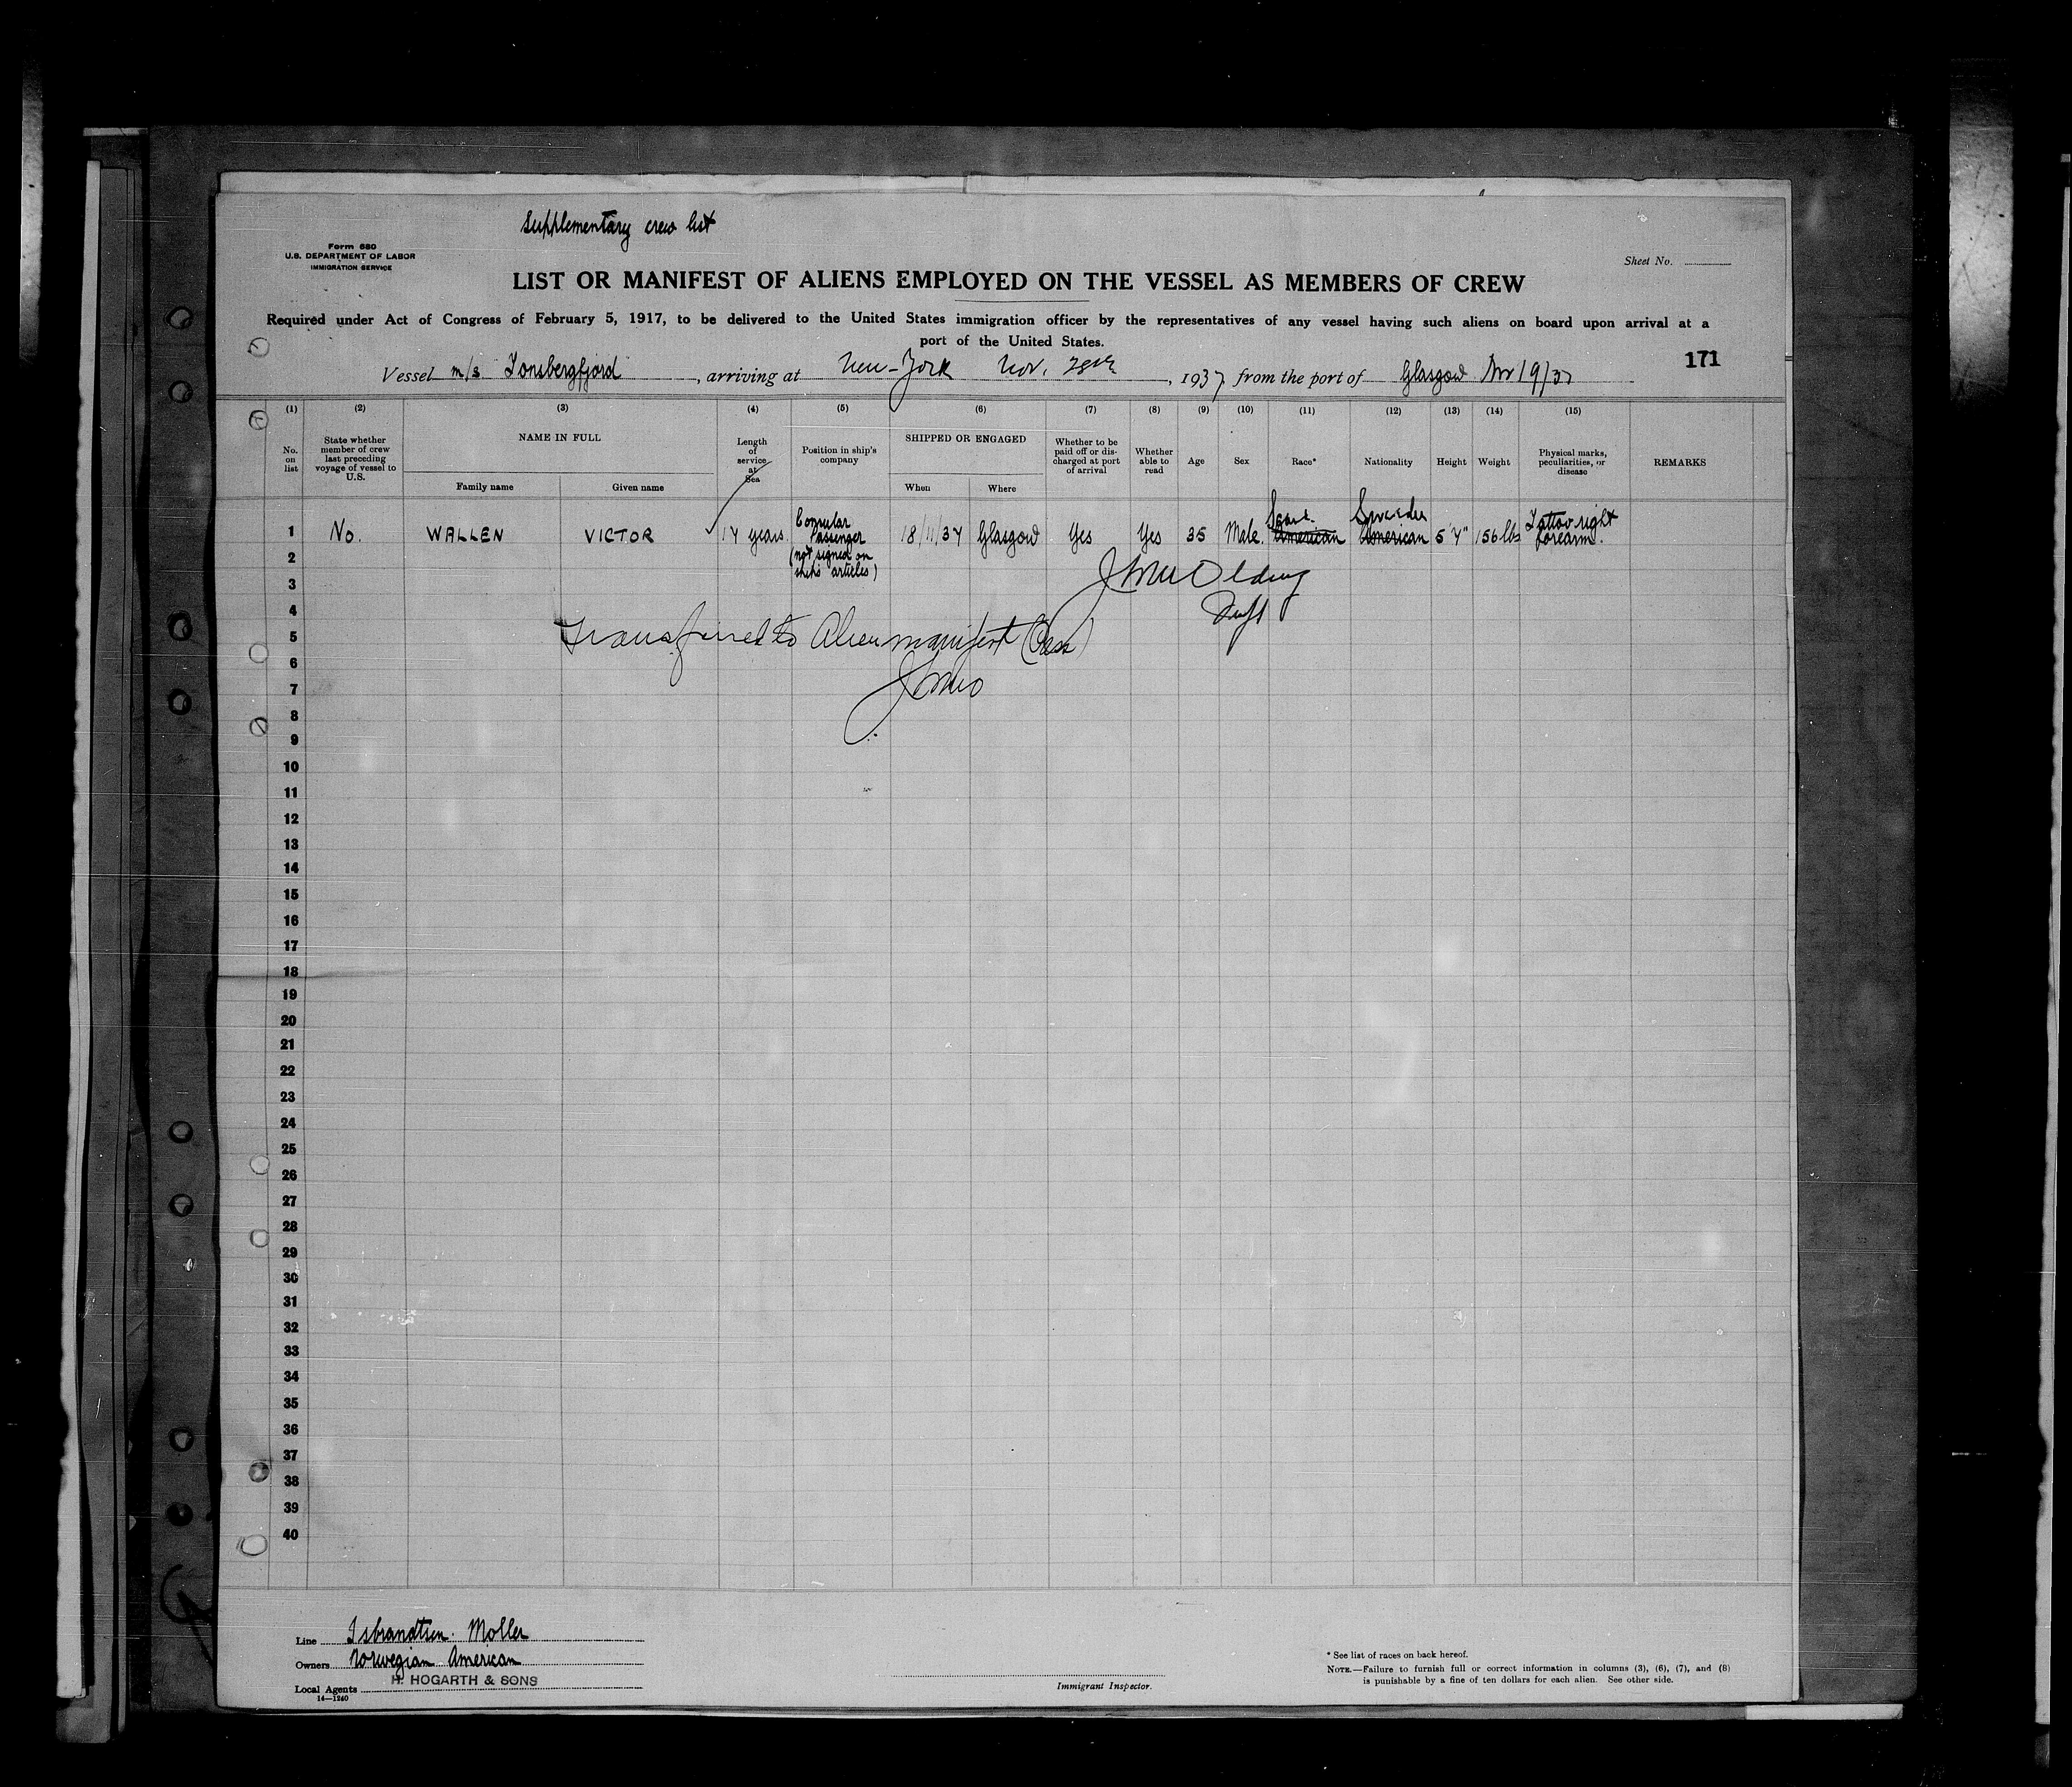 Supplementary crew list
Form 680
U.S. DEPARTMENT OF LABOR
IMMIGRATION SERVICE
Sheet No.
LIST OR MANIFEST OF ALIENS EMPLOYED ON THE VESSEL AS MEMBERS OF CREW
Required under Act of Congress of February 5, 1917, to be delivered to the United States immigration officer by the representatives of any vessel having such aliens on board upon arrival at a
port of the United States.
171
Vessel m/s Tonsbergfjord, arriving at New-York Nov. 28th, 1937, from the port of Glasgow Nov 19/37
(1) (2) (3) (4) (5) (6) (7) (8) (9) (10) (11) (12) (13) (14) (15)
No. on list
State whether member of crew last preceding voyage of vessel to U.S.
NAME IN FULL
Family name
Given name
Length of service at Sea
Position in ship's company
SHIPPED OR ENGAGED
When
Where
Whether to be paid off or discharged at port of arrival
Whether able to read
Age
Sex
Race*
Nationality
Height
Weight
Physical marks, peculiarities, or disease
REMARKS
1 No. WALLEN VICTOR 17 years Consular Passenger (not signed on ship's articles) 18/11/37 Glasgow Yes Yes 35 Male Scand. American Sweden American 5'7" 156 lbs Tattoo right forearm.
2
3
4
Transferred to Alien manifest (Pass)
5
6
7
8
9
10
11
12
13
14
15
16
17
18
19
20
21
22
23
24
25
26
27
28
29
30
31
32
33
34
35
36
37
38
39
40
Line Isbrandtsen. Moller
Owners Norwegian American
Local Agents H. HOGARTH & SONS
14—1240
Immigrant Inspector.
* See list of races on back hereof.
NOTE.—Failure to furnish full or correct information in columns (3), (6), (7), and (8)
is punishable by a fine of ten dollars for each alien. See other side.